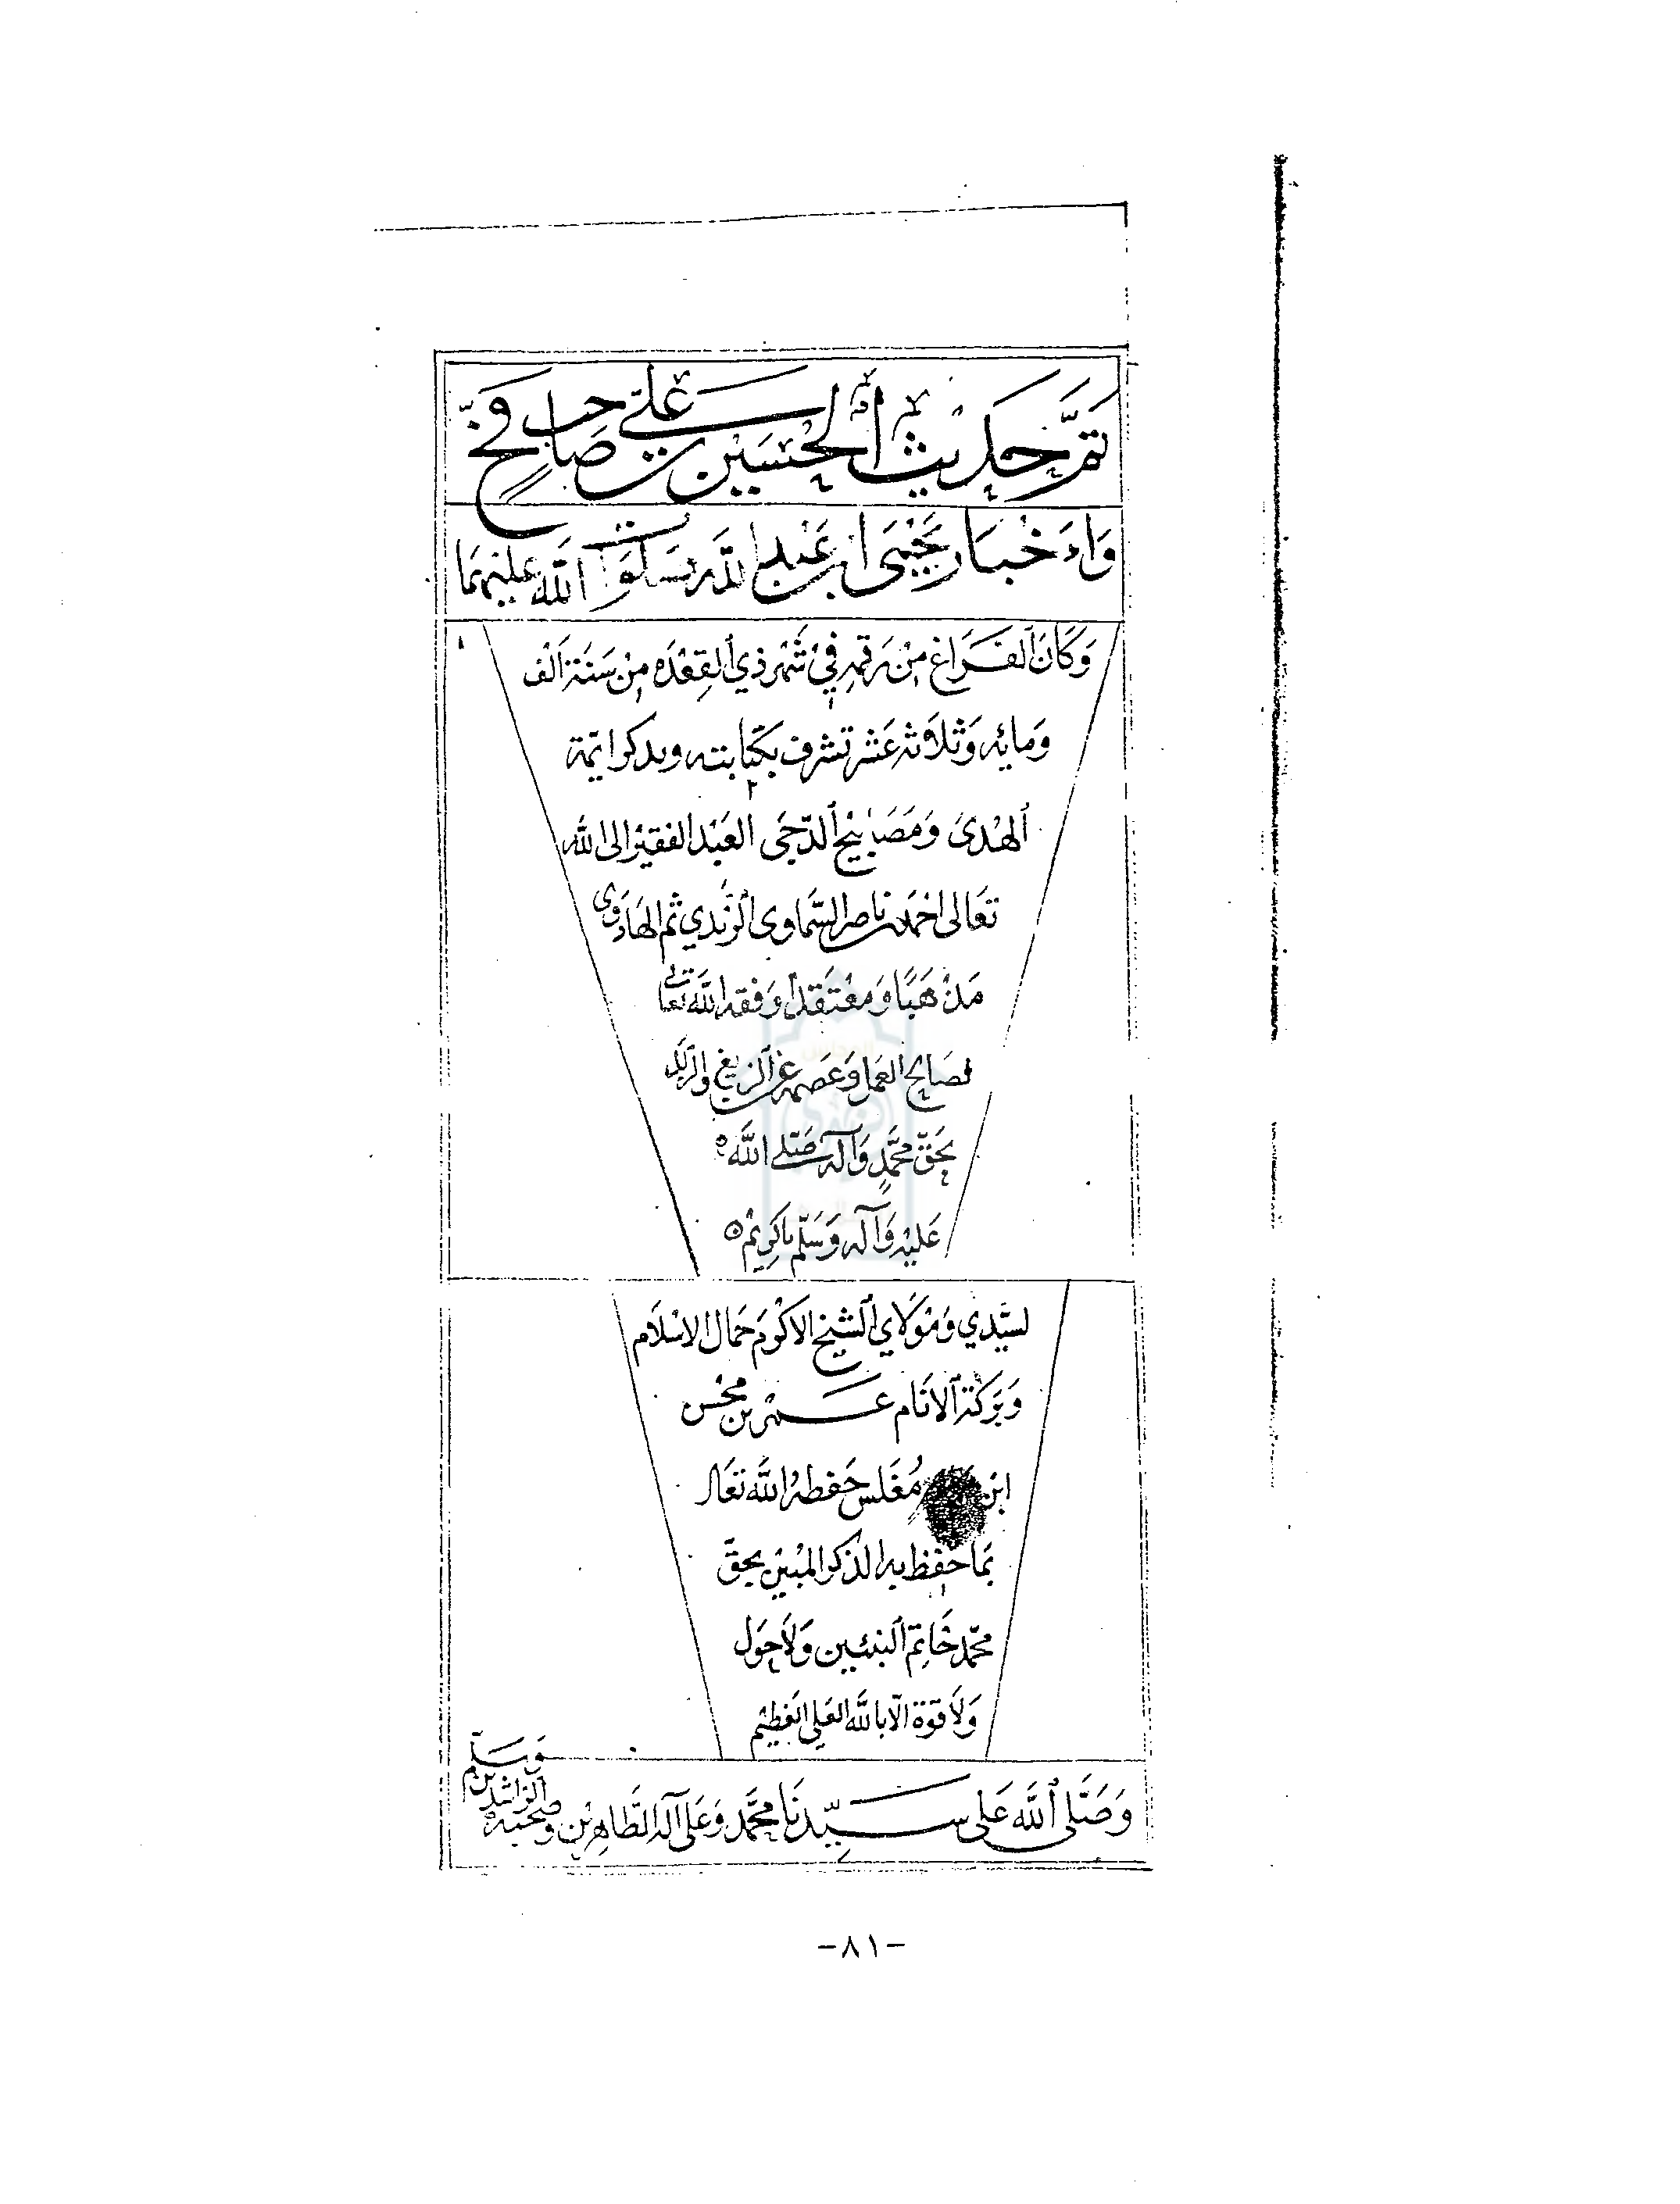 تَمَّ حَدِيْث الحُسَين بن عَليّ صَاحب فَخّ
وَاءَخْبَار يَحْيَى ابن عَبْد اللَّه صَلَوَات اللَّه عَليْهِمَا
وَكَانَ الفَرَاغ مِنْ رَقمِه فِيْ شَهْر ذي القِعْدَه مِنْ سَنَة اَلْف
وَمايه وَثلَاثه عَشر تشرف بكتَابته وبذكر ايمّة
الهُدَى وَمَصَابيْح الدّجَى العَبْد الفقيْر الى الله
تعَالى احْمَد بن ناصر السَّماوى الزَّيدي ثم الهَادَوى
مَذْهَبًا وَمعْتَقدًا وَفقه اللَّه تعَالى
لصَالح العَمل وَعَصمه عن الزيغ والزلل
بحَقّ محَمَّدٍ وَآله صَلى اللَّه
عَليْه وَآله وَسَلّم يا كَرِيْم
لسيّدي وَمَوْلَاي الشيْخ الاكْرَم جَمَال الاسْلَام
وَبَرَكَة الانَام عَمْر بن محْسن
ابْن مُغَلس حَفظهُ اللَّه تعَالى
بمَا حَفِظ به الذكر المبيْن بحقّ
محمّد خَاتِم النبيّين وَلَا حَول
وَلَا قوّة الّا باللَّه العَلي العَظيْم
وَصَلَّى اللَّه عَلى سَيِّدنَا محَمَّد وَعَلى آله الطَّاهِرِيْن وصَحبه
الرّاشدين
وَسَلّم
-٨١-